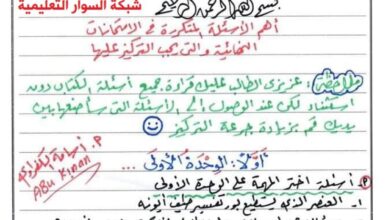 شبكة السوار التعليمية
بسم الله الرحمن الرحيم
أهم الأسئلة المتكررة في الامتحانات
النهائية والتي يجب التركيز عليها
ملاحظة: عزيزي الطالب عليك قراءة جميع أسئلة الكتاب دون
استثناء لكن عند الوصول الى الأسئلة التي سأضعها بين
يديك قم بزيادة جرعة التركيز
أ. أسامة
ABU KINAN
أولاً: الوحدة الأولى ...
أسئلة اختر المهمة على الوحدة الأولى
١- العنصر الذي يستطيع بور تفسير طيف